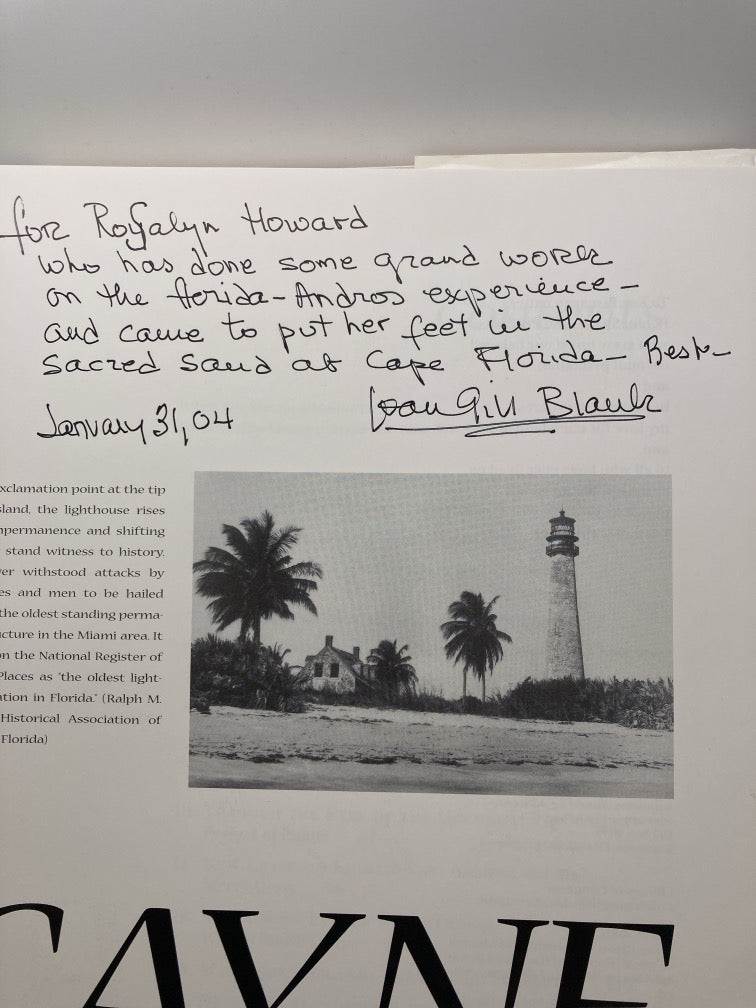 for Rosalyn Howard
who has done some grand work
on the florida-Andros experience -
and came to put her feet in the
Sacred Sand at Cape Florida - Best -
January 31, 04
Joan Gill Blank
xclamation point at the tip
sland, the lighthouse rises
mpermanence and shifting
stand witness to history.
er withstood attacks by
es and men to be hailed
the oldest standing perma-
ucture in the Miami area. It
on the National Register of
Places as "the oldest light-
ation in Florida." (Ralph M.
Historical Association of
Florida)
CAYNE